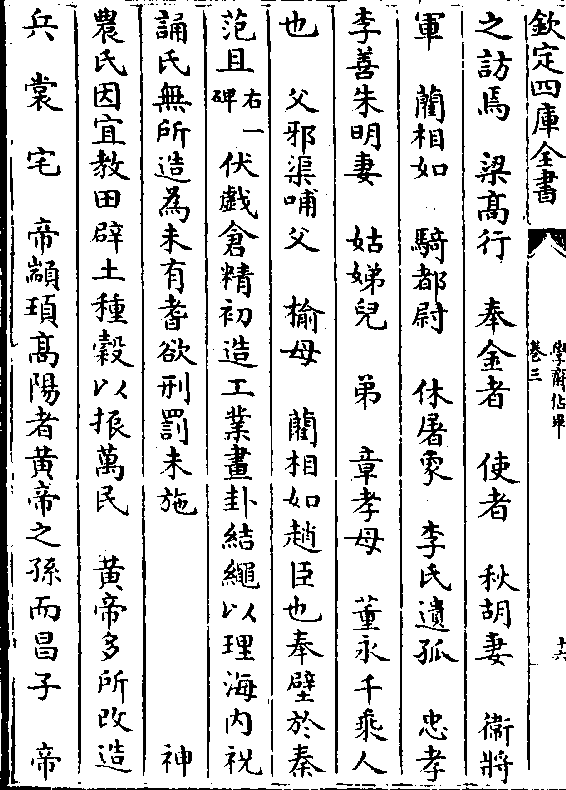 欽定四庫全書
學齋佔畢
卷三
十六
之訪焉　梁髙行　奉金者　使者　秋胡妻　衛將
軍　藺相如　騎都尉　休屠𧰼　李氏遺孤　忠孝
李善朱明妻　姑娣兒　弟　章孝母　董永千乘人
也　父邪渠哺父　榆母　藺相如趙臣也奉璧於秦
范且右一碑　伏戲倉精初造工業畫卦結繩以理海内祝
誦氏無所造為未有耆欲刑罰未施　神
農氏因宜教田辟土種穀以振萬民　黄帝多所改造
兵　裳　宅　帝顓頊髙陽者黄帝之孫而昌子　帝